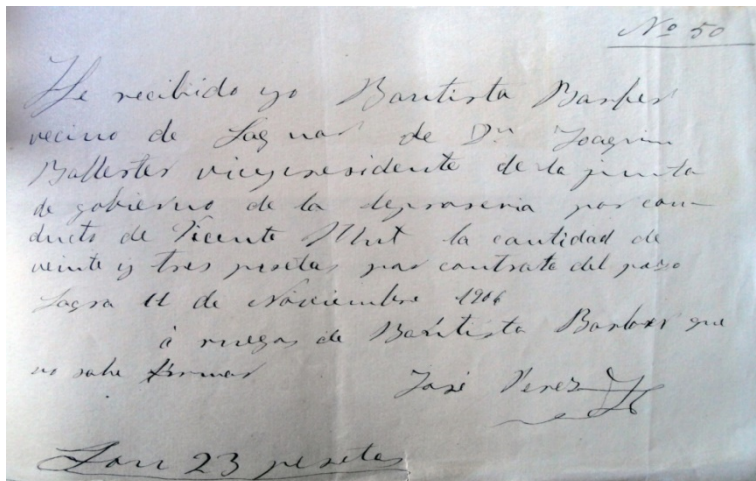 Nº 50
He recibido yo Bautista Barber
vecino de Laguar de Dn Joaquin
Ballester vicepresidente de la junta
de gobierno de la leproseria por con-
ducto de Vicente Mut la cantidad de
veinte y tres pesetas por contrato del pozo
Sagra 11 de Noviembre 1906
á ruegos de Bautista Barber que
no sabe firmar José Perez
Son 23 pesetas